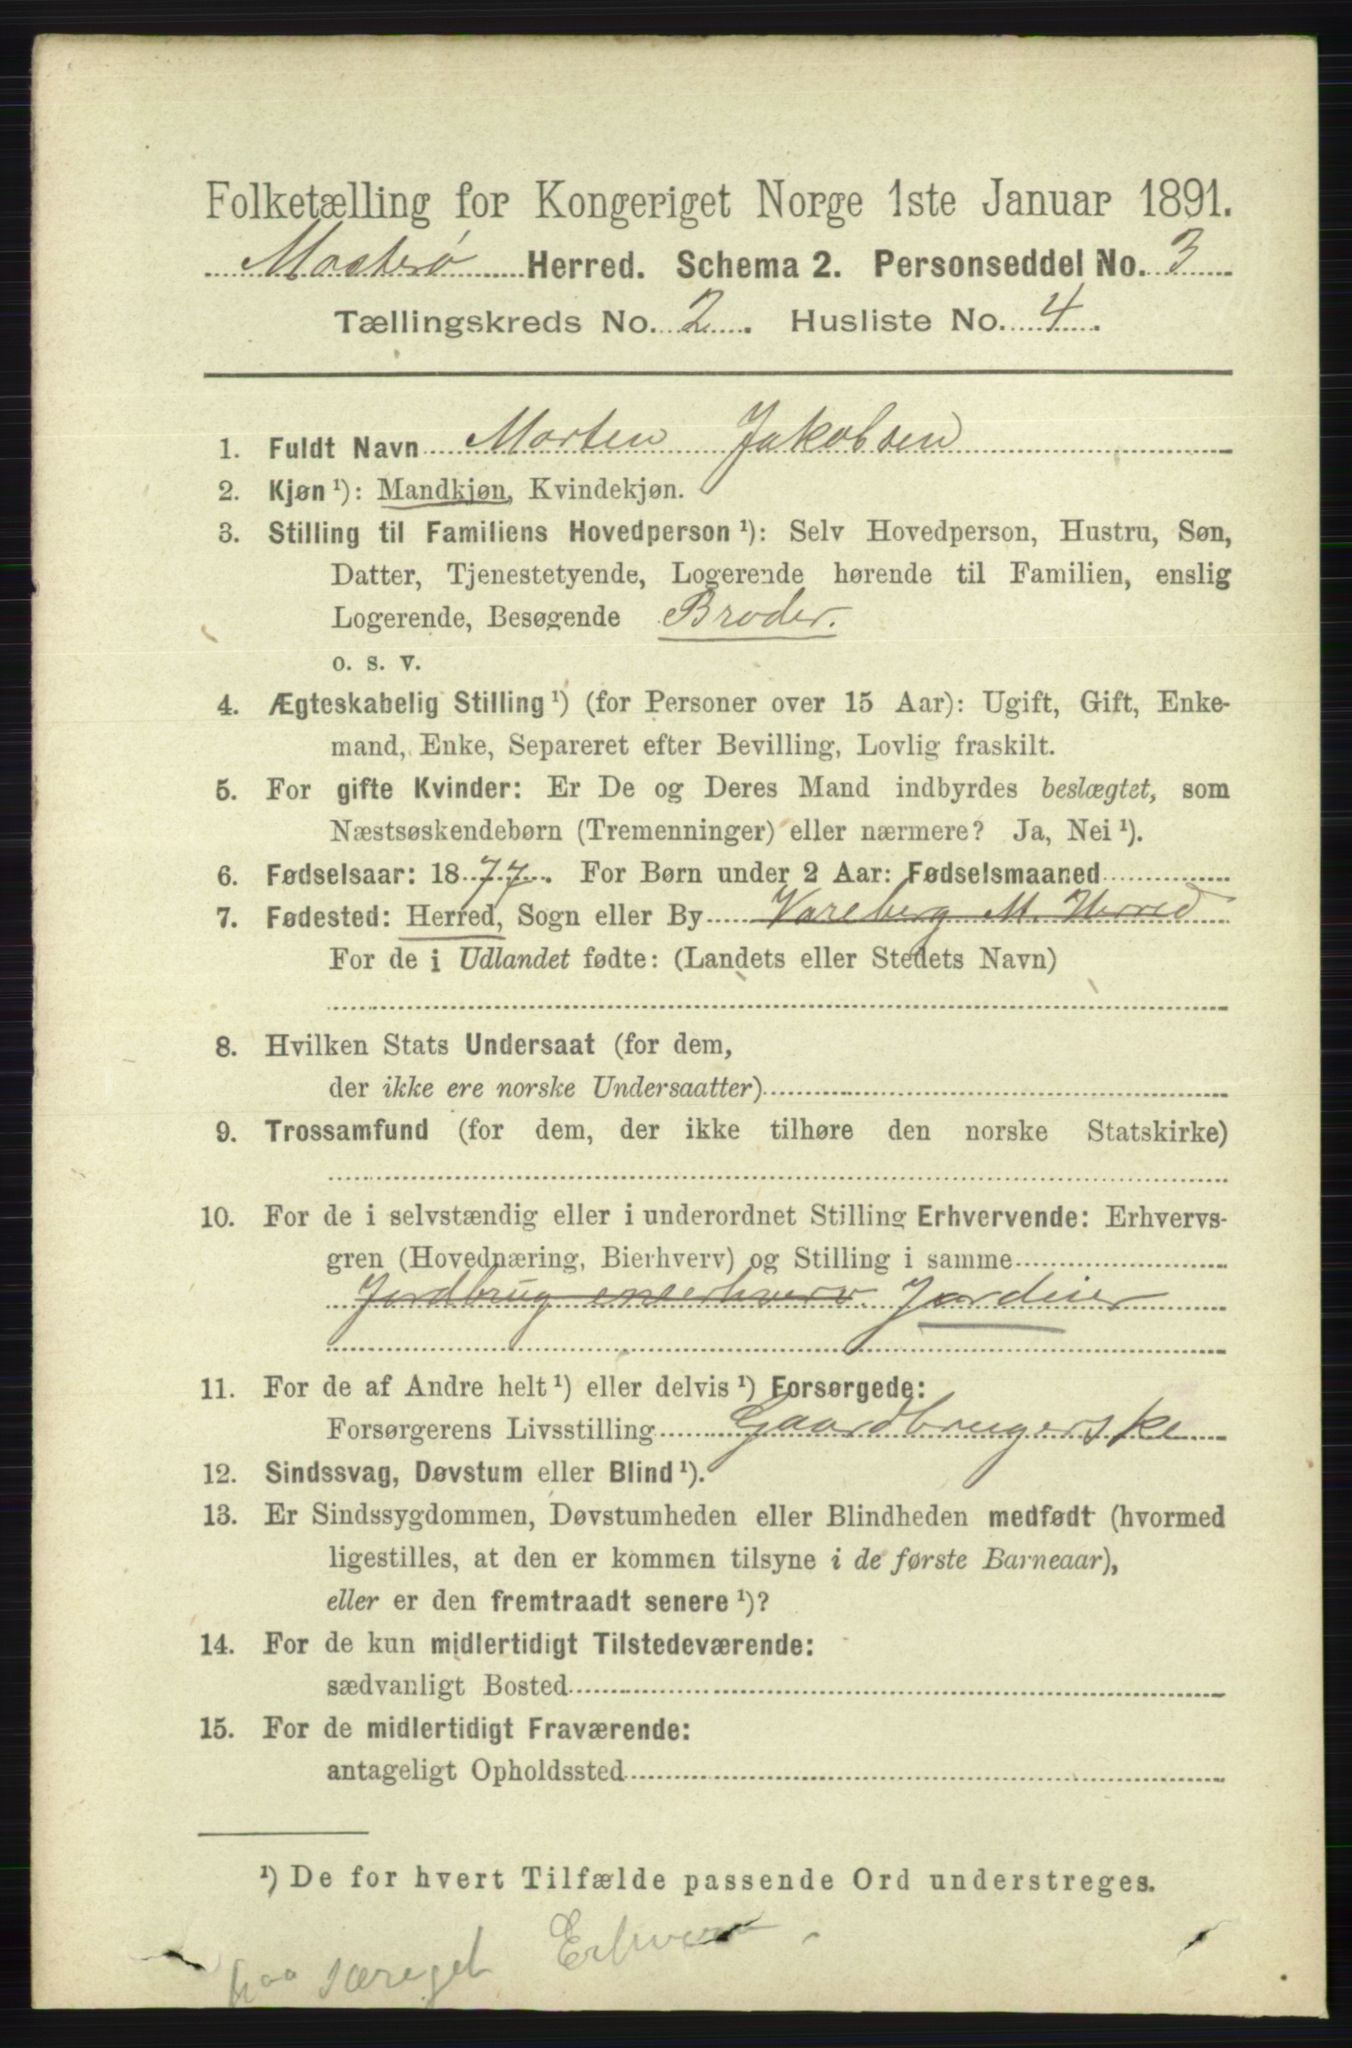 Folketælling for Kongeriget Norge 1ste Januar 1891.
Mosterø Herred. Schema 2. Personseddel No. 3
Tællingskreds No. 2. Husliste No. 4.
1. Fuldt Navn Morten Jakobsen
2. Kjøn ¹): Mandkjøn, Kvindekjøn.
3. Stilling til Familiens Hovedperson ¹): Selv Hovedperson, Hustru, Søn,
Datter, Tjenestetyende, Logerende hørende til Familien, enslig
Logerende, Besøgende Broder.
o. s. v.
4. Ægteskabelig Stilling ¹) (for Personer over 15 Aar): Ugift, Gift, Enke-
mand, Enke, Separeret efter Bevilling, Lovlig fraskilt.
5. For gifte Kvinder: Er De og Deres Mand indbyrdes beslægtet, som
Næstsøskendebørn (Tremenninger) eller nærmere? Ja, Nei ¹).
6. Fødselsaar: 1877. For Børn under 2 Aar: Fødselsmaaned
7. Fødested: Herred, Sogn eller By Vareberg M. Herred
For de i Udlandet fødte: (Landets eller Stedets Navn)
8. Hvilken Stats Undersaat (for dem,
der ikke ere norske Undersaatter)
9. Trossamfund (for dem, der ikke tilhøre den norske Statskirke)
10. For de i selvstændig eller i underordnet Stilling Erhvervende: Erhvervs-
gren (Hovednæring, Bierhverv) og Stilling i samme
Jordbrug eneerhverv.
11. For de af Andre helt ¹) eller delvis ¹) Forsørgede:
Forsørgerens Livsstilling Gaardbrugerske
12. Sindssvag, Døvstum eller Blind ¹).
13. Er Sindssygdommen, Døvstumheden eller Blindheden medfødt (hvormed
ligestilles, at den er kommen tilsyne i de første Barneaar),
eller er den fremtraadt senere ¹)?
14. For de kun midlertidigt Tilstedeværende:
sædvanligt Bosted
15. For de midlertidigt Fraværende:
antageligt Opholdssted
¹) De for hvert Tilfælde passende Ord understreges.
særeget Erhverv